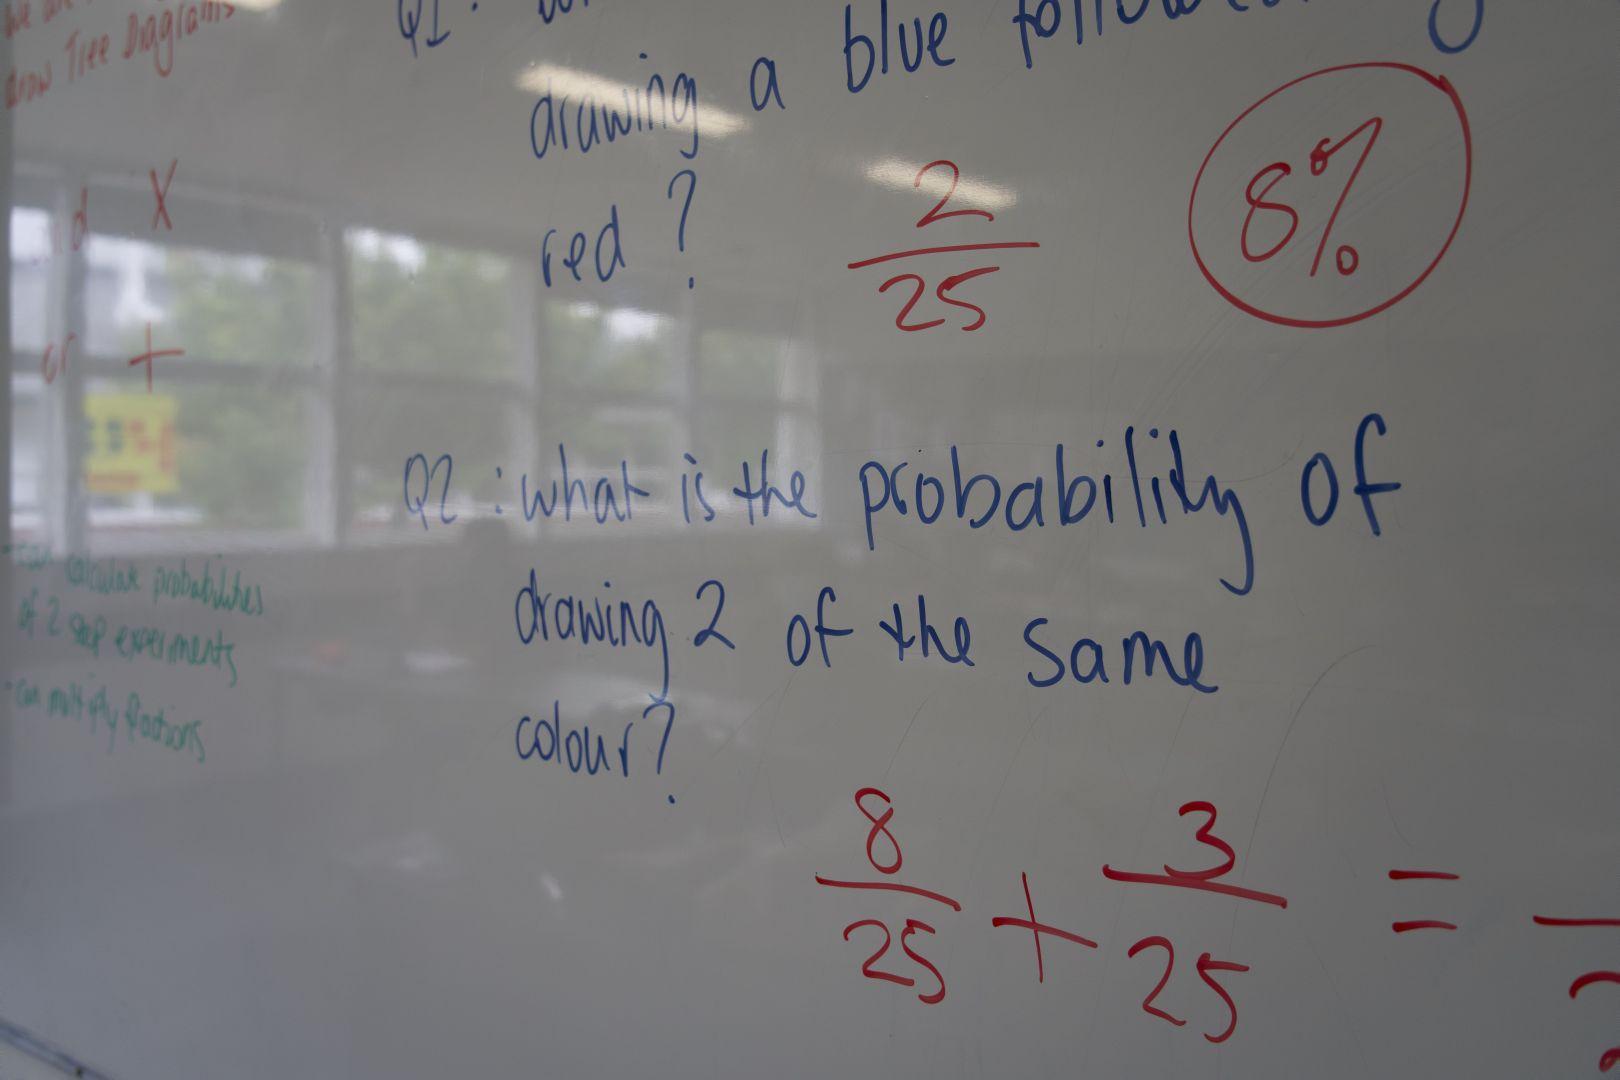 We are
draw Tree Diagrams
X
or +
can calculate probabilities
of 2 step experiments
can multiply fractions
Q1:
drawing a blue followed
red?
2
25
8%
Q2: what is the probability of
drawing 2 of the same
colour?
8/25 + 3/25 =